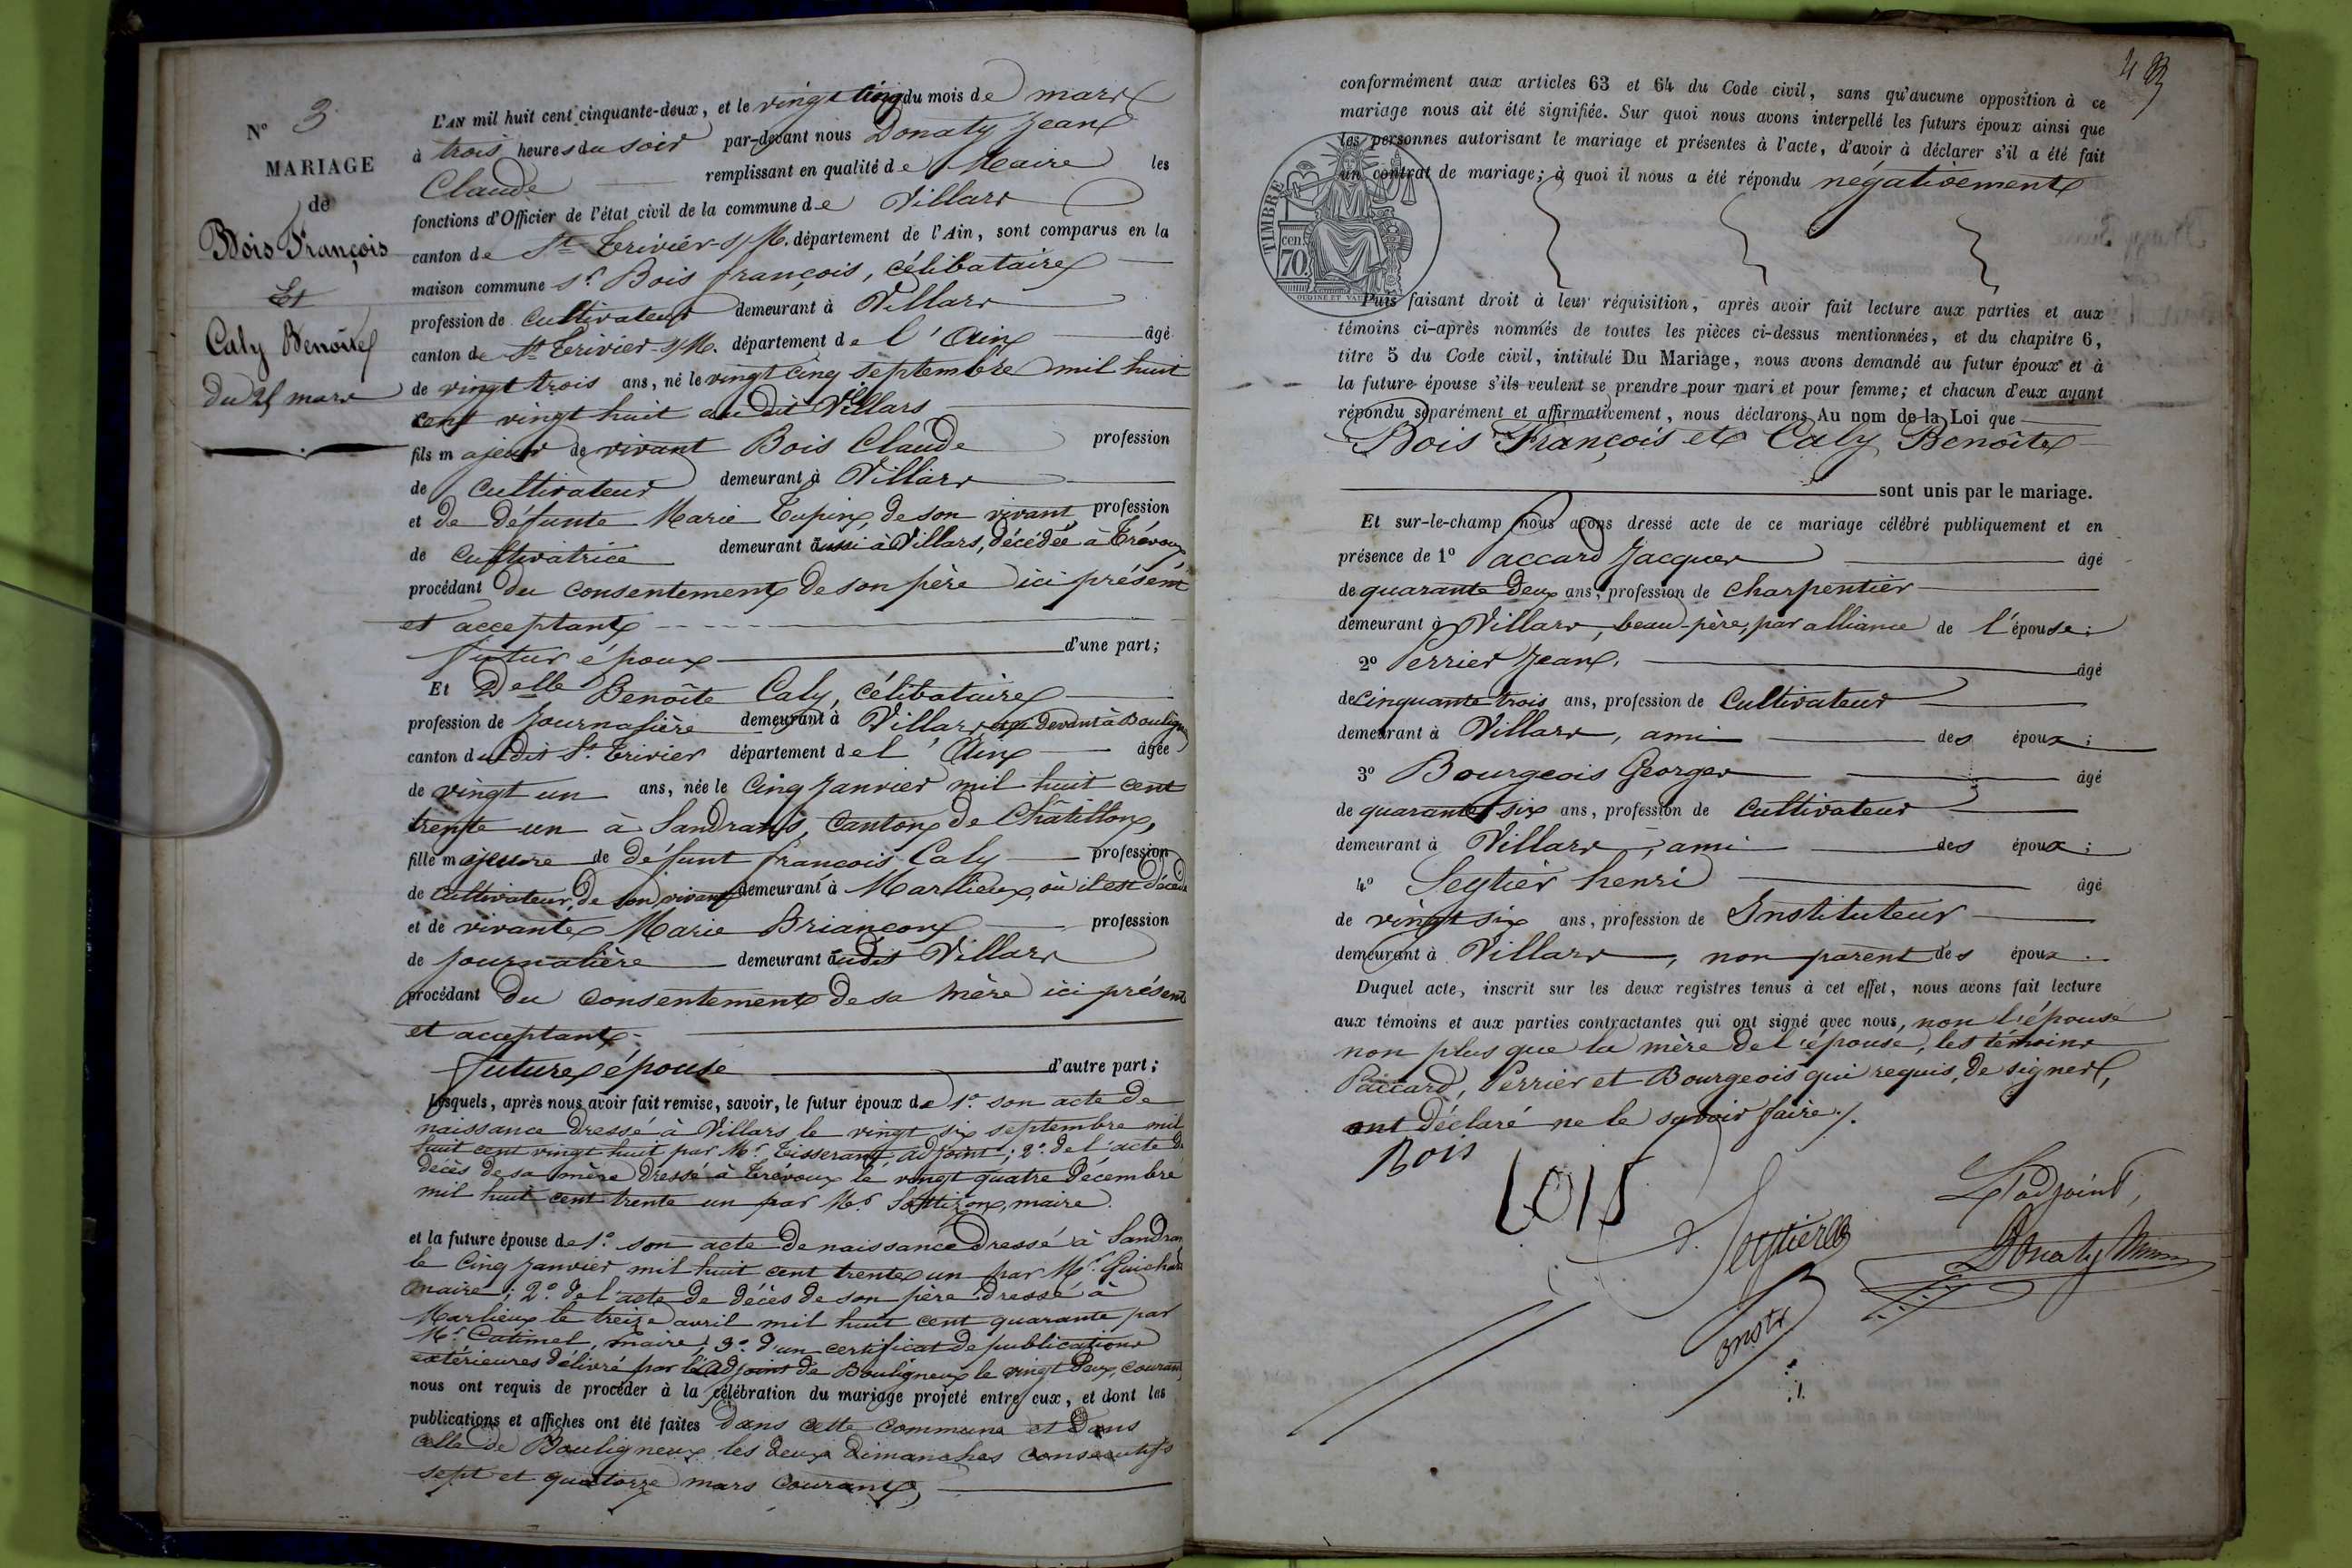 N° 3
MARIAGE
de
Bois François
Et
Caly Benoîte
du 25 mars
L'AN mil huit cent cinquante-deux, et le vingt cinq du mois de mars
à trois heures du soir par-devant nous Donaty Jean
Claude remplissant en qualité de Maire les
fonctions d'Officier de l'état civil de la commune de Villars
canton de St Trivier-s/M. département de l'Ain, sont comparus en la
maison commune sr Bois françois, célibataire
profession de cultivateur demeurant à Villars
canton de St Trivier-s/M. département de l'Ain âgé
de vingt trois ans, né le vingt cinq septembre mil huit
cent vingt huit au dit Villars
fils majeur de vivant Bois Claude profession
de cultivateur demeurant à Villars
et de défunte Marie Tupin, de son vivant profession
de cultivatrice demeurant aussi à Villars, décédée à Trévoux
procédant du consentement de son père ici présent
et acceptant
futur époux d'une part;
Et Delle Benoîte Caly, célibataire
profession de journalière demeurant à Villars devant à Bouligneux
canton du dit St. Trivier département de l'Ain âgée
de vingt un ans, née le cinq janvier mil huit cent
trente un à Sandrans, canton de Châtillon,
fille majeure de défunt françois Caly profession
de cultivateur, de son vivant demeurant à Marlieux, où il est décédé
et de vivante Marie Briancon profession
de journalière demeurant audit Villars
procédant du consentement de sa mère ici présente
et acceptante
future épouse d'autre part;
Lesquels, après nous avoir fait remise, savoir, le futur époux de 1° son acte de
naissance dressé à Villars le vingt six septembre mil
huit cent vingt huit par Mr Tisserand, adjoint; 2° de l'acte de
décès de sa mère dressé à Trévoux le vingt quatre décembre
mil huit cent trente un par Mr maire.
et la future épouse de 1° son acte de naissance dressé à Sandrans
le cinq janvier mil huit cent trente un par Mr Guichard
maire; 2° de l'acte de décès de son père dressé à
Marlieux le treize avril mil huit cent quarante par
Mr Catimel, maire; 3° d'un certificat de publications
extérieures délivré par l'adjoint de Bouligneux le vingt deux courant
nous ont requis de procéder à la célébration du mariage projeté entre eux, et dont les
publications et affiches ont été faites dans cette commune et dans
celle de Bouligneux les deux dimanches consecutifs
sept et quatorze mars courant,
conformément aux articles 63 et 64 du Code civil, sans qu'aucune opposition à ce
mariage nous ait été signifiée. Sur quoi nous avons interpellé les futurs époux ainsi que
les personnes autorisant le mariage et présentes à l'acte, d'avoir à déclarer s'il a été fait
un contrat de mariage; à quoi il nous a été répondu négativement
TIMBRE
70 cen.
Puis faisant droit à leur réquisition, après avoir fait lecture aux parties et aux
témoins ci-après nommés de toutes les pièces ci-dessus mentionnées, et du chapitre 6,
titre 5 du Code civil, intitulé Du Mariage, nous avons demandé au futur époux et à
la future épouse s'ils veulent se prendre pour mari et pour femme; et chacun d'eux ayant
répondu séparément et affirmativement, nous déclarons Au nom de la Loi que
Bois François et Caly Benoîte
sont unis par le mariage.
Et sur-le-champ nous avons dressé acte de ce mariage célébré publiquement et en
présence de 1° Paccard Jacques âgé
de quarante deux ans, profession de charpentier
demeurant à Villars, beau-père, par alliance de l'épouse;
2° Perrier Jean, âgé
de cinquante trois ans, profession de cultivateur
demeurant à Villars, ami des époux;
3° Bourgeois Georges âgé
de quarante six ans, profession de cultivateur
demeurant à Villars, ami des époux;
4° Seytier henri âgé
de vingt six ans, profession de Instituteur
demeurant à Villars, non parent des époux.
Duquel acte, inscrit sur les deux registres tenus à cet effet, nous avons fait lecture
aux témoins et aux parties contractantes qui ont signé avec nous, non l'épouse
non plus que la mère de l'épouse, les témoins
Paccard, Perrier et Bourgeois qui requis, de signer,
ont déclaré ne le savoir faire./.
Bois
Seytier
L'adjoint,
Donaty